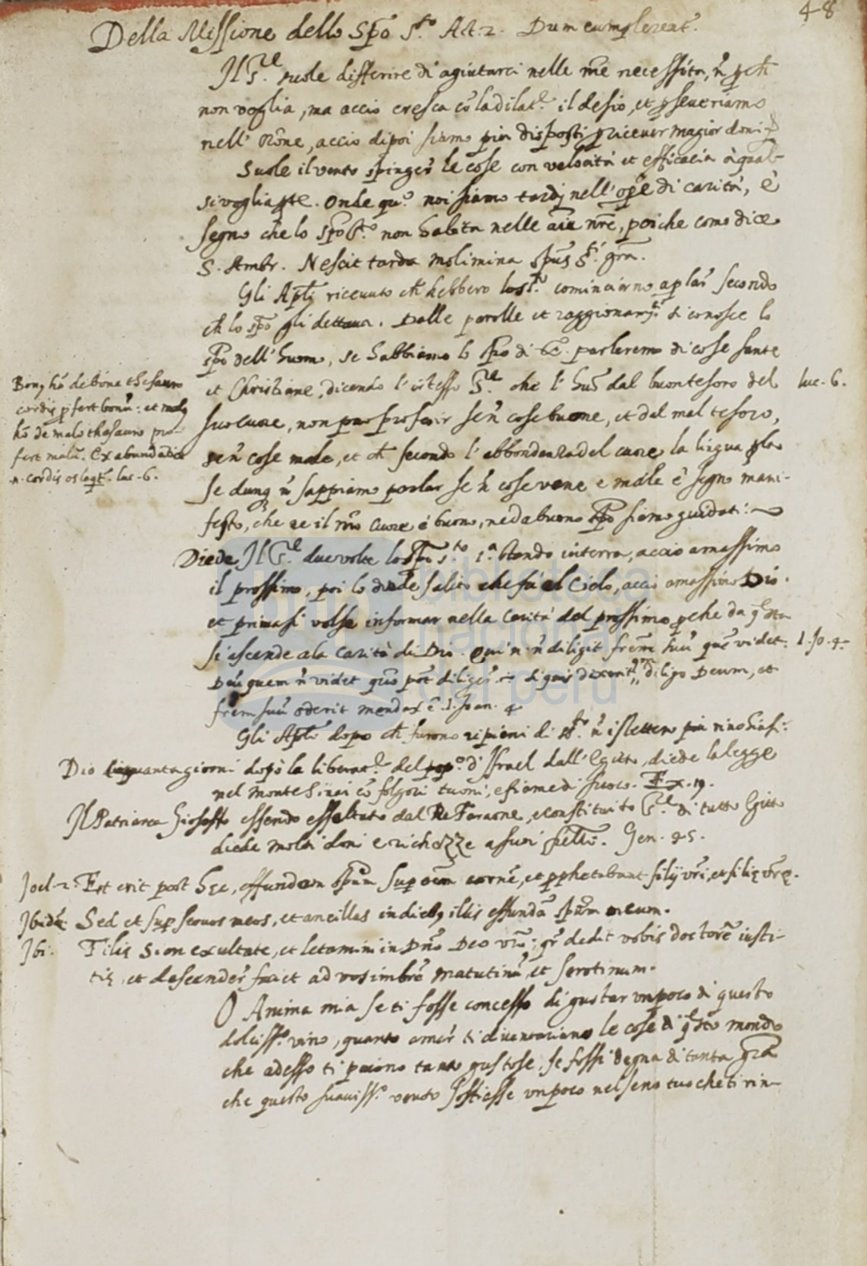 48
Della Missione dello Spõ S.to Act. 2. Dum complerent.
Il S.re suole differire di agiutarci nelle nr̃e necessità, nõ pchè
non voglia, ma acciò cresca cõ la dilat.e il desio, et pseveriamo
nell' orõne, acciò dipoi siamo più disposti p ricever magior doni.
Suole il vento spinger le cose con velocità et efficacia à qual
si voglia pte. Onde qñ noi siamo tardi nell' opẽ di carità, è
segno che lo Spõ S.to non habita nelle aĩe nr̃e, poiche come dice
S. Ambr. Nescit tarda molimina Spũs S.ti grã.
Gli Apli ricevuto ch' hebbero lo S.to cominciorno a plar secondo
ch' lo Spõ gli dettava. Dalle parolle et raggionam.ti si conosce lo
spõ dell' huom, se habbiamo lo Spõ di parleremo di cose sante
et Christiane, dicendo l' istesso S.re che l' huõ dal buon tesoro del
suo cuore, non può proferir se nõ cose buone, et dal mal tesoro,
se nõ cose male, et ch' secondo l' abbondanza del cuore la lingua pla
se dunq nõ sappiamo parlar se nõ cose vane e male è segno mani-
festo, che ne il nr̃o cuore è buono, ne da buono spõ siamo guidati:
Bonus hõ de bono thesauro
cordis pfert bonũ: et malus
hõ de malo thesauro pro
fert malũ. Ex abundantia
n. cordis os loqt.r luc. 6.
luc. 6.
Diede Il S.re due volte lo Spũ S.to 1.a stando in terra, acciò amassimo
il prossimo, poi lo diede salito che fù al Cielo, acciò amassimo Dio.
et prima si volse informar nella Carità del prossimo pche da qsta
si ascende ala carità di Dio. Qui n. nõ diligit frẽm suũ quẽ videt
Deũ quem nõ videt quõ pot diliger si quis dixerit, diligo Deum, et
frẽm suũ oderit mendax ẽ. 1. Joan. 4
1. Jo. 4.
Gli Apli dopo ch' furono ripieni di S.to nõ istettero più rinchiusi.
Dio cinquanta giorni dopò la liberat.e del pop.o d' Israel dall' Egitto, diede la legge
nel monte Sinai cõ folgori tuoni, e fiame di fuoco. Ex. 19.
Il Patriarca Gioseffo essendo essaltato dal Re Faraone, e constituito S.re di tutto Egitto
diede molti doni e richezze a suoi fratelli. Gen. 45.
Joel. 2. Et erit post hec, effundam Spũm sup oẽm carnẽ, et pphetabunt filij vr̃i, et filie vr̃e.
Ibidẽ. Sed et sup servos meos, et ancillas in diebus illis effundã Spũm meum.
Ibi. Filie Sion exultate, et letamini in Dñõ Deo vr̃o: qr dedit vobis doctorẽ iusti-
tie, et descender faciet ad vos imbrẽ matutinũ et serotinum.
O Anima mia se ti fosse concesso di gustar un poco di questo
dolciss.o vino, quanto amar ti diventariano le cose di qsto mondo
che adesso ti paiono tanto gustose. Se fossi degna di tanta grã
che questo suaviss.o vento soffiasse un poco nel seno tuo che ti rin-
biblioteca
nacional
del perú